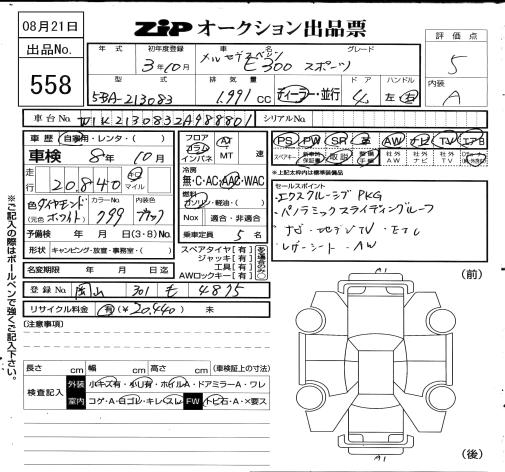 08月21日
ZIP オークション出品票
出品No.
558
年式 初年度登録 車名 グレード
3年10月 メルセデスベンツ E300 スポーツ
型式 排気量 ドア ハンドル
5BA-213083 1.991cc ディーラー・並行 4 左 右
評価点
5
内装
A
車台No. W1K2130832A988801 シリアルNo.
車歴 自家用・レンタ・( )
車検 8年10月
走行 20,840 キロ マイル
色 ダイヤモンドホワイト (元色 ) カラーNo. 799 ブラック
予備検 年 月 日(3・8)No.
形状 キャンピング・放置・事務室・( )
名変期限 年 月 日迄
フロア コラム インパネ AT MT 速
冷房 無・C・AC・AAC・WAC
燃料 ガソリン・軽油・( )
Nox 適合・非適合
乗車定員 5名
スペアタイヤ【有】
ジャッキ【有】
工具【有】
AWロックキー【有】
ある場合のみ○
PS PW SR 革 AW ナビ TV エアB
スペアキー 新車時保証書 取説 整備手帳 社外AW 社外ナビ 社外TV
★上記枠内は標準装備品
セールスポイント
・エクスクルーシブ PKG
・パノラミックスライディングルーフ
・ナビ・地デジTV・ETC
・レザーシート・AW
登録No. 岡山 301 も 4875
リサイクル料金 有(¥20,440) 未
(注意事項)
長さ cm 幅 cm 高さ cm (車検証上の寸法)
検査記入 外装 小キズ有・小凹有・ホイルA・ドアミラーA・ワレ
室内 コゲ・A・白ゴレ・キレ・スレ FW トビ石・A・×要ス
A1
(前)
A1
(後)
※ご記入の際はボールペンで強くご記入下さい。